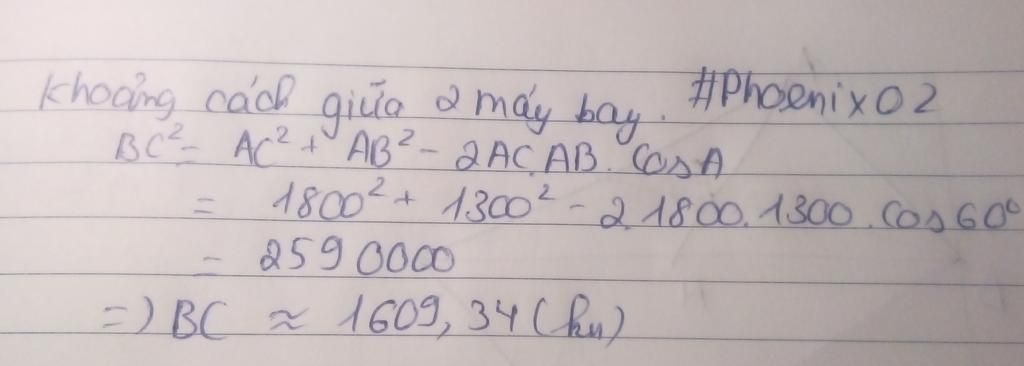 Khoảng cách giữa 2 máy bay. #Phoenix02
BC² = AC² + AB² - 2AC.AB.cosA
= 1800² + 1300² - 2.1800.1300.cos60°
= 2590000
=> BC ≈ 1609,34 (km)